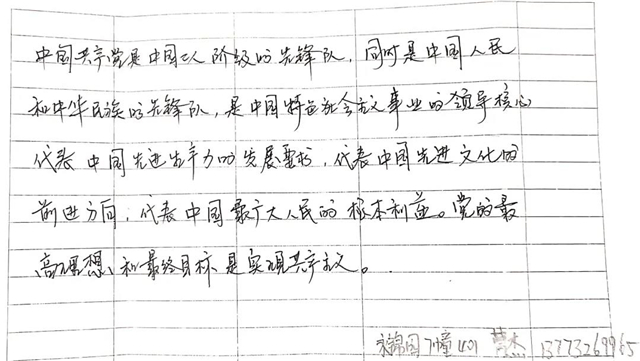 中国共产党是中国工人阶级的先锋队，同时是中国人民
和中华民族的先锋队，是中国特色社会主义事业的领导核心
代表中国先进生产力的发展要求，代表中国先进文化的
前进方向，代表中国最广大人民的根本利益。党的最
高理想和最终目标是实现共产主义。
锦园7幢401 杰 13773269965